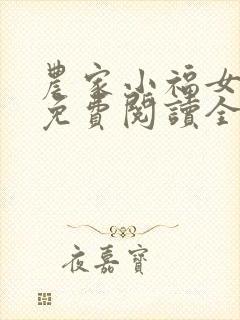 農家小福女
免費閱讀全
夜嘉寶